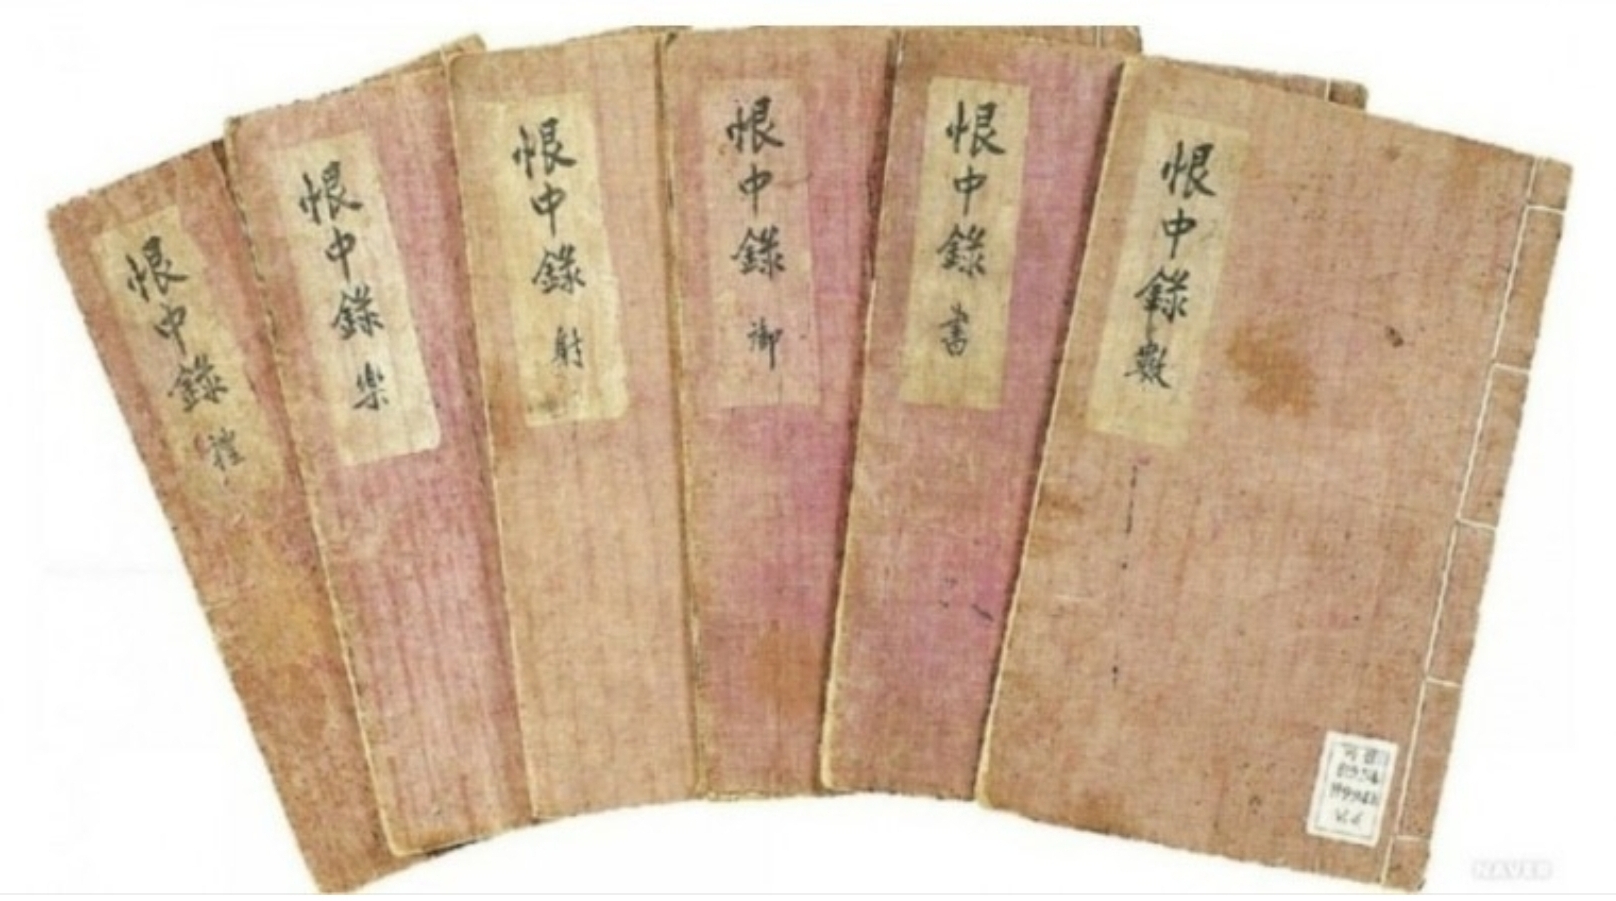 恨中錄 禮
恨中錄 樂
恨中錄 射
恨中錄 御
恨中錄 書
恨中錄 數
NAVER